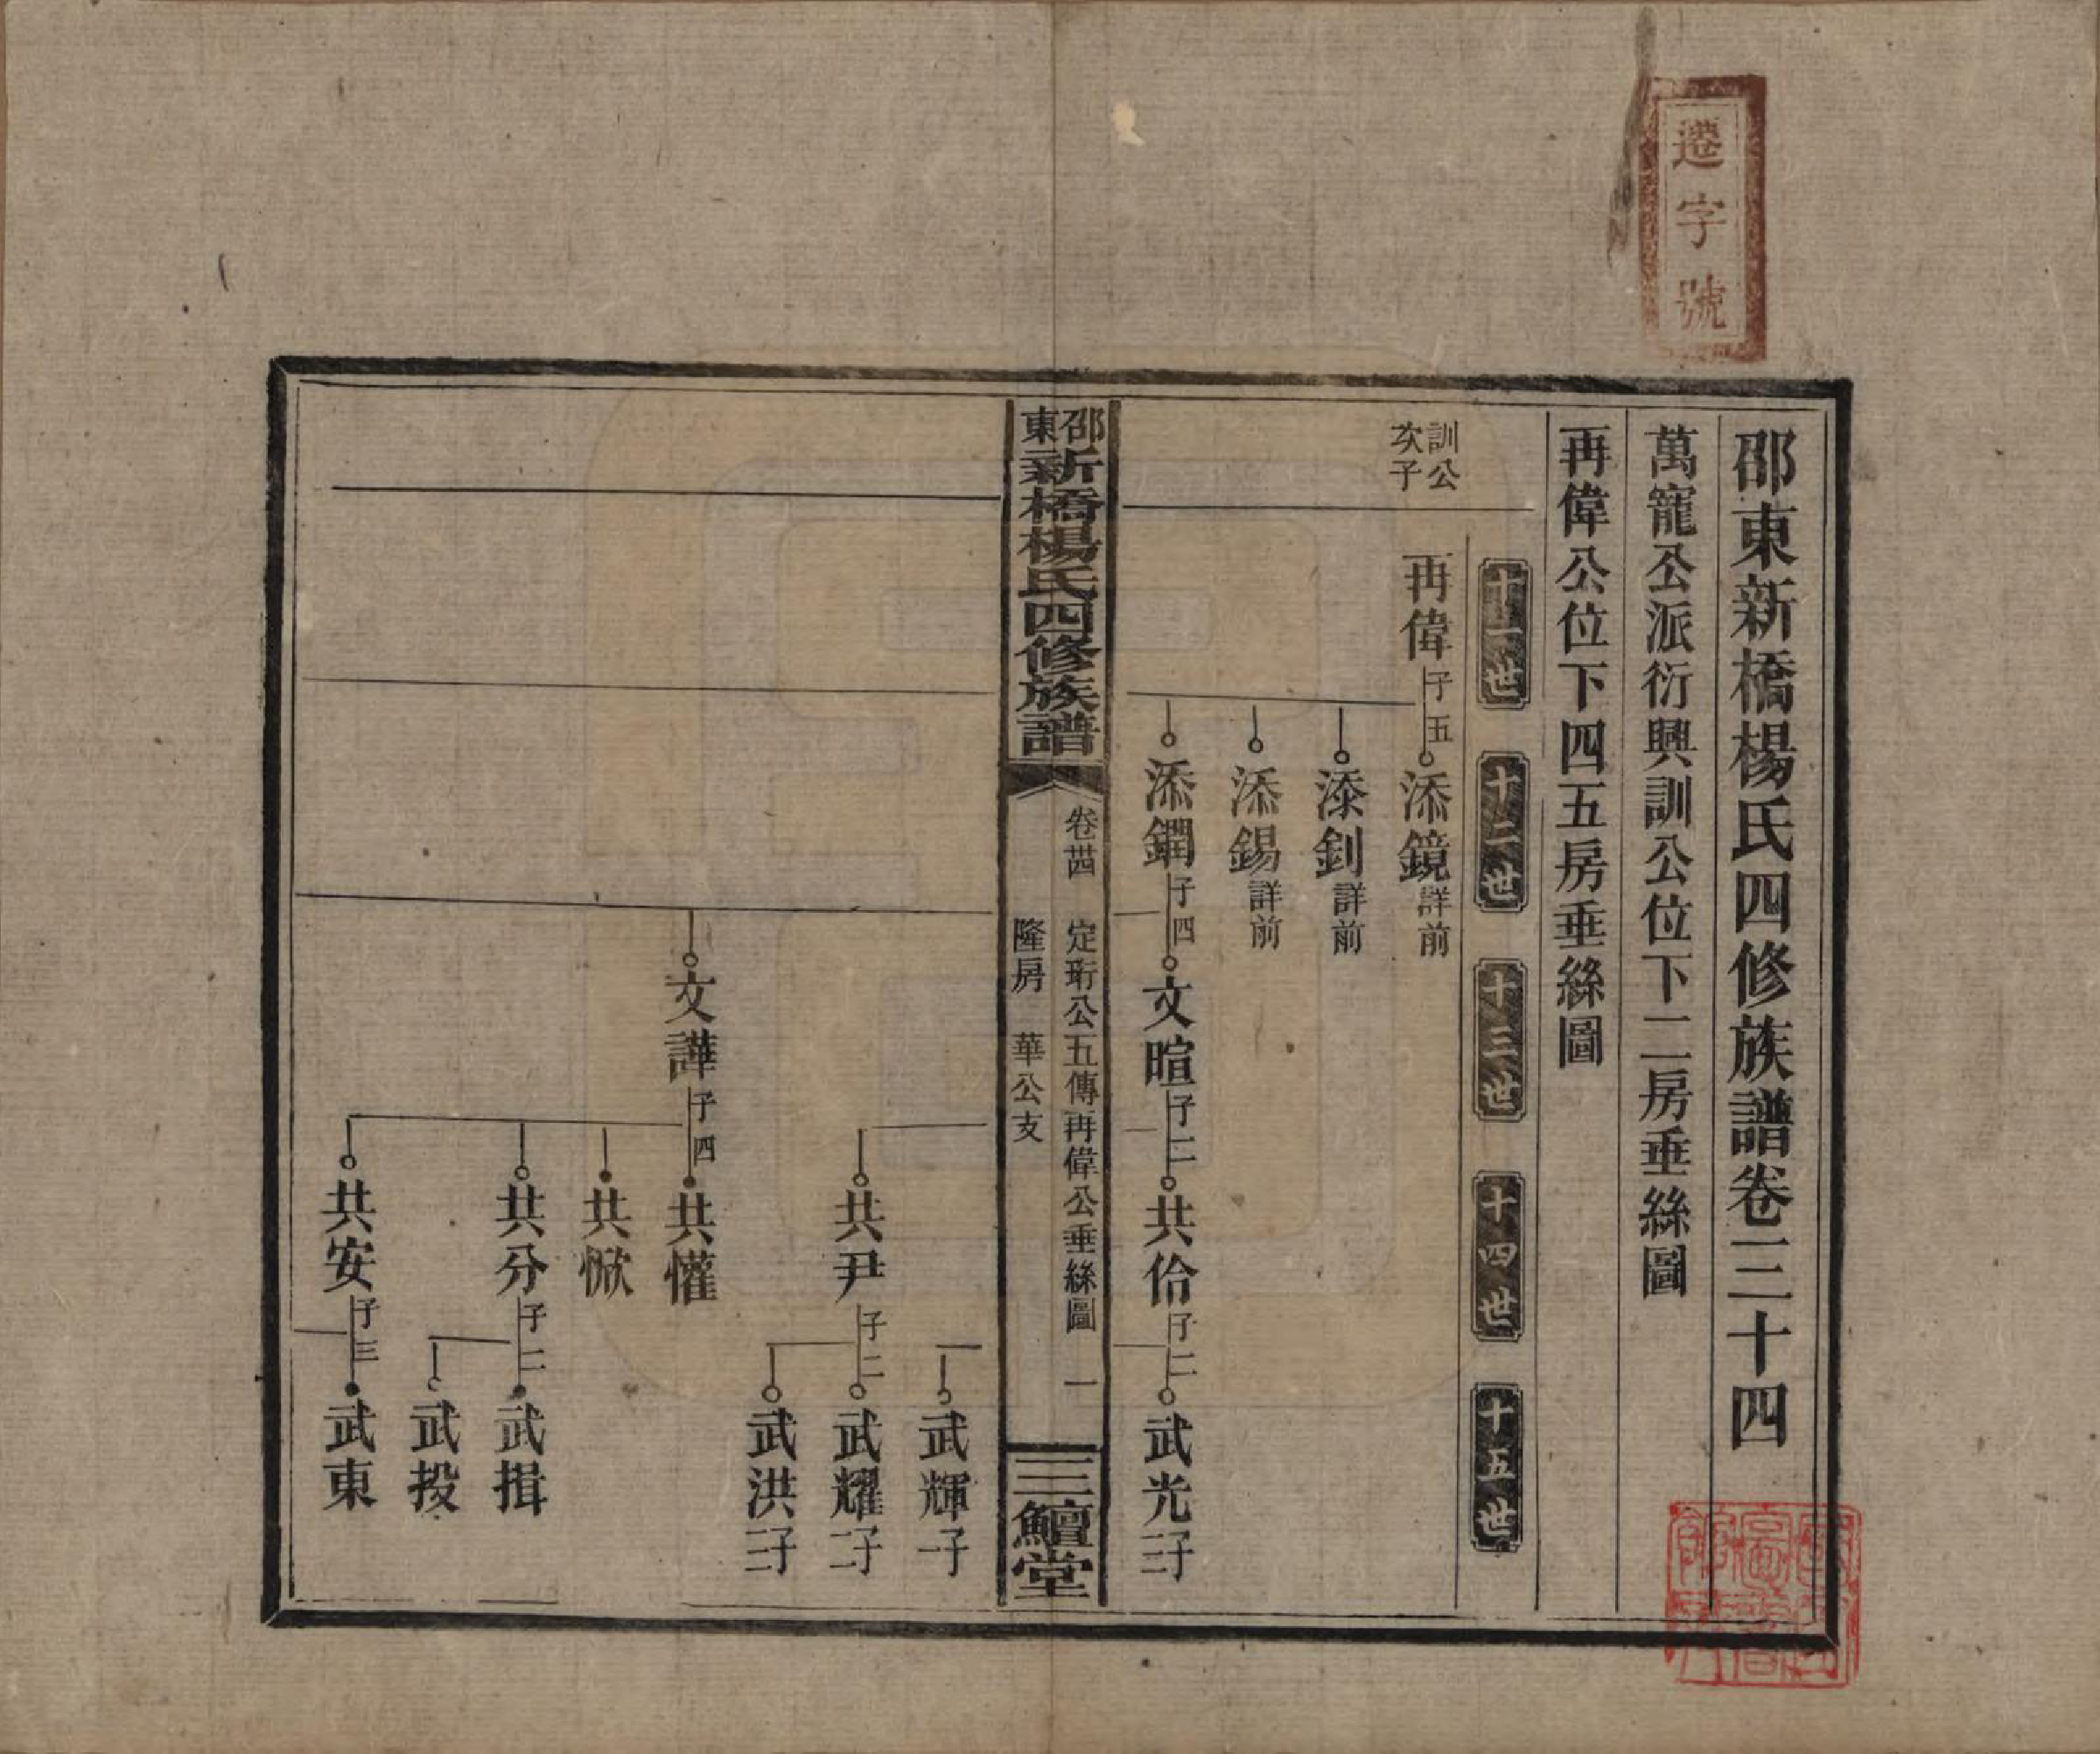 遷字號
邵東新橋楊氏四修族譜卷三十四
萬寵公派衍興訓公位下二房垂絲圖
再偉公位下四五房垂絲圖
十一世
十二世
十三世
十四世
十五世
訓公次子
再偉子五
添鏡詳前
添釗詳前
添錫詳前
添鐗子四
文暄子二
共佮子二
武光子二
邵東新橋楊氏四修族譜
卷卅四
定珩公五傳再偉公垂絲圖
一
隆房
華公支
三鱣堂
武輝子一
共尹子二
武耀子二
武洪子三
文譁子四
共懽
共惞
共分子二
武揖
武投
共安子三
武東